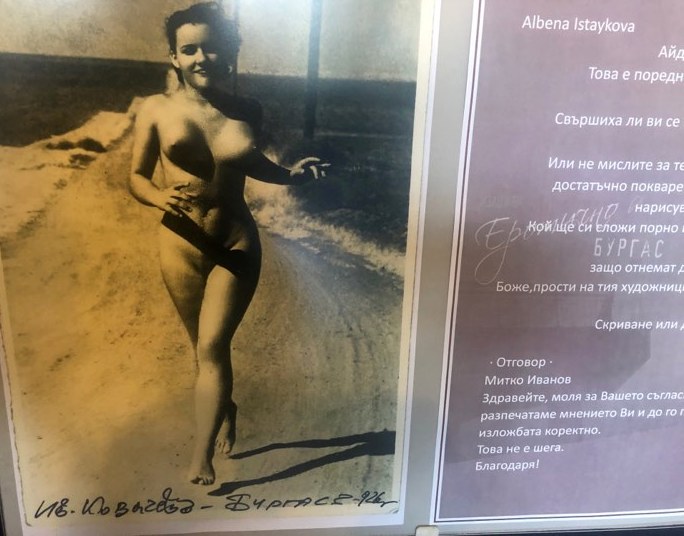 Albena Istaykova
Айд
Това е поредн
Свършиха ли ви се
Или не мислите за те
достатъчно покваре
нарисув
Кой ще си сложи порно и
Еротично
БУРГАС
защо отнемат д
Боже,прости на тия художници
Скриване или д
· Отговор ·
Митко Иванов
Здравейте, моля за Вашето съглас
разпечатаме мнението Ви и до го п
изложбата коректно.
Това не е шега.
Благодаря!
Ив.